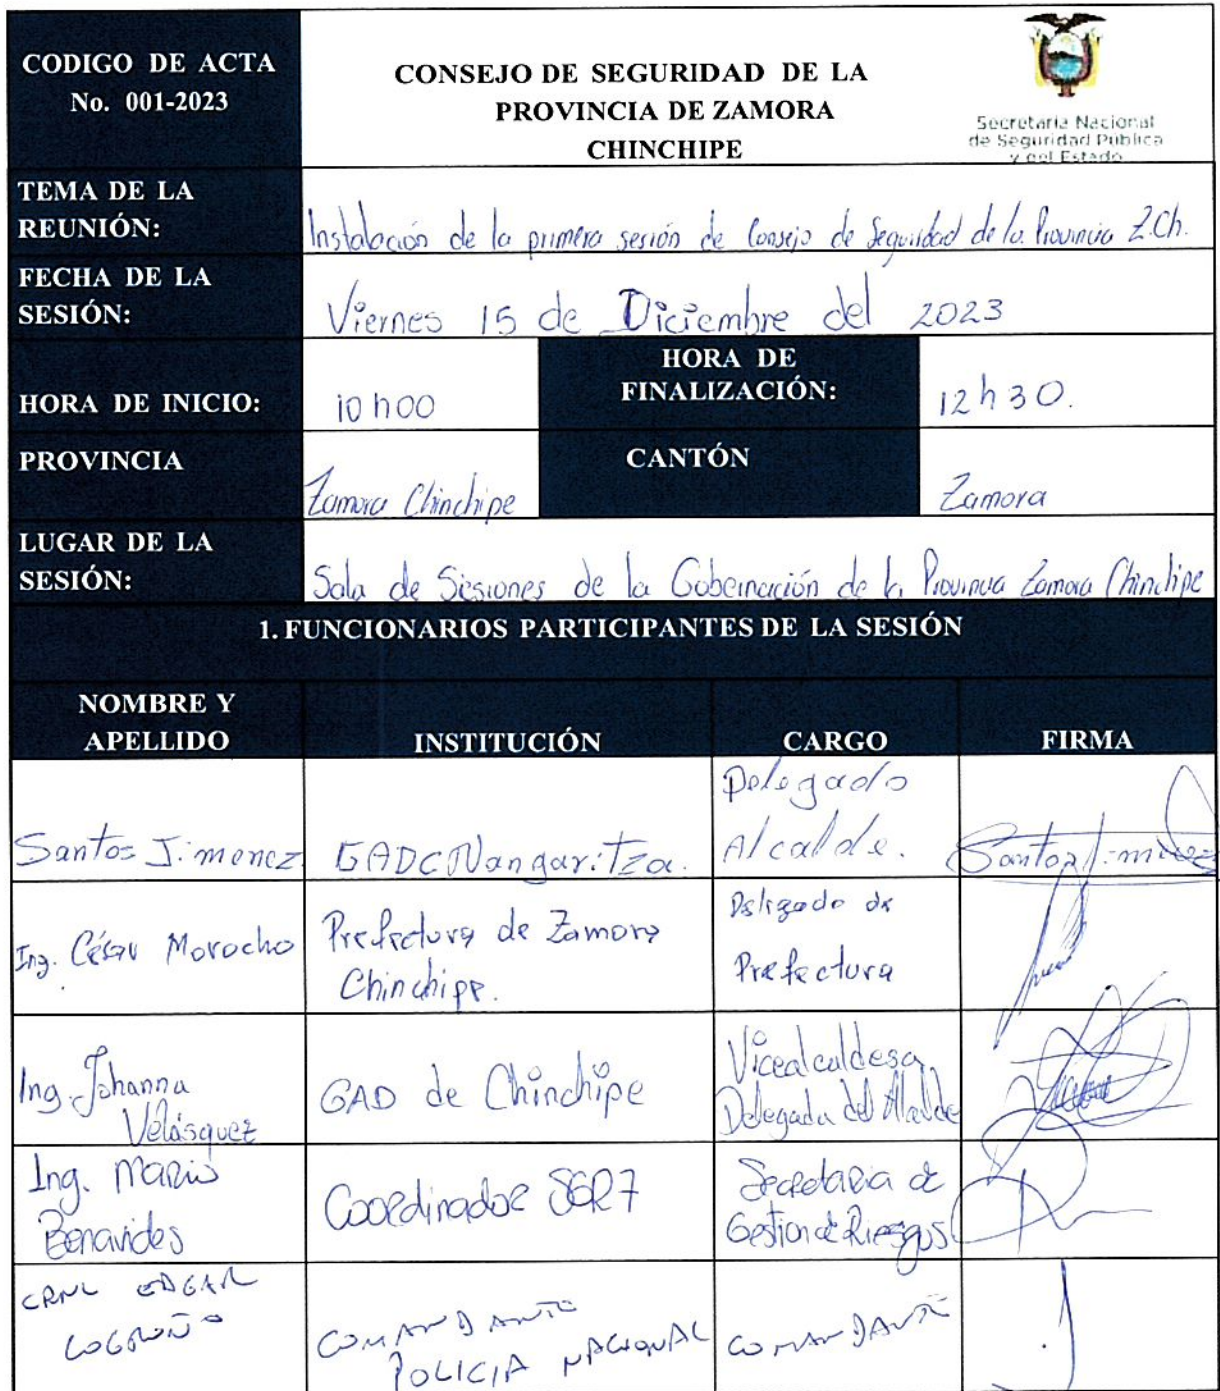 CODIGO DE ACTA
No. 001-2023
CONSEJO DE SEGURIDAD DE LA
PROVINCIA DE ZAMORA
CHINCHIPE
Secretaría Nacional
de Seguridad Pública
y del Estado
TEMA DE LA
REUNIÓN:
Instalación de la primera sesión de Consejo de Seguridad de la Provincia Z.Ch.
FECHA DE LA
SESIÓN:
Viernes 15 de Diciembre del 2023
HORA DE INICIO:
10h00
HORA DE
FINALIZACIÓN:
12h30.
PROVINCIA
Zamora Chinchipe
CANTÓN
Zamora
LUGAR DE LA
SESIÓN:
Sala de Sesiones de la Gobernación de la Provincia Zamora Chinchipe
1. FUNCIONARIOS PARTICIPANTES DE LA SESIÓN
NOMBRE Y
APELLIDO
INSTITUCIÓN
CARGO
FIRMA
Santos Jimenez
GADC Nangaritza.
Delegado
Alcalde.
Santos Jimenez
Ing. César Morocho
Prefectura de Zamora
Chinchipe.
Delegado de
Prefectura
Ing. Johanna
Velásquez
GAD de Chinchipe
Vicealcaldesa
Delegada del Alcalde
Ing. Mario
Benavides
Coordinador SGR7
Secretaria de
Gestion de Riesgos
CRNL EDGAR
LOGROÑO
COMANDANTE
POLICIA NACIONAL
COMANDANTE